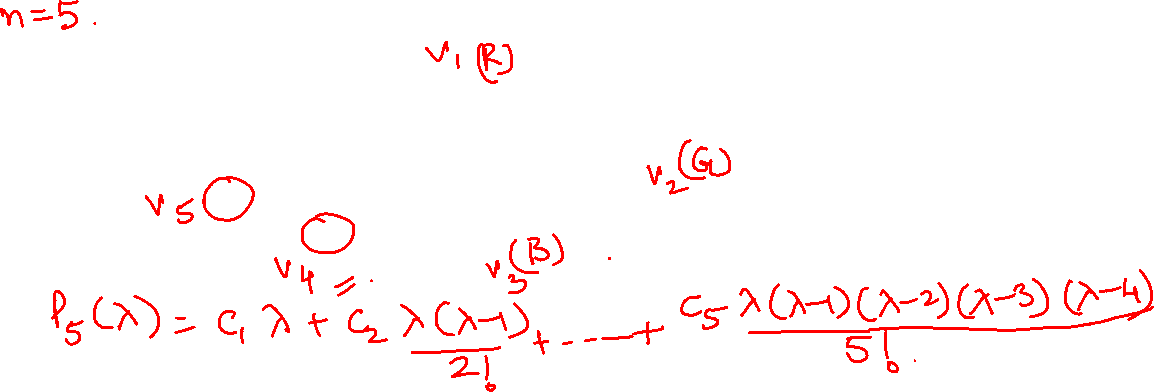 n=5.
v₁ (R)
v₂ (G)
v₅
v₄
v₃ (B)
P₅(λ) = C₁ λ + C₂ λ(λ-1)/2! + ----- + C₅ λ(λ-1)(λ-2)(λ-3)(λ-4)/5!